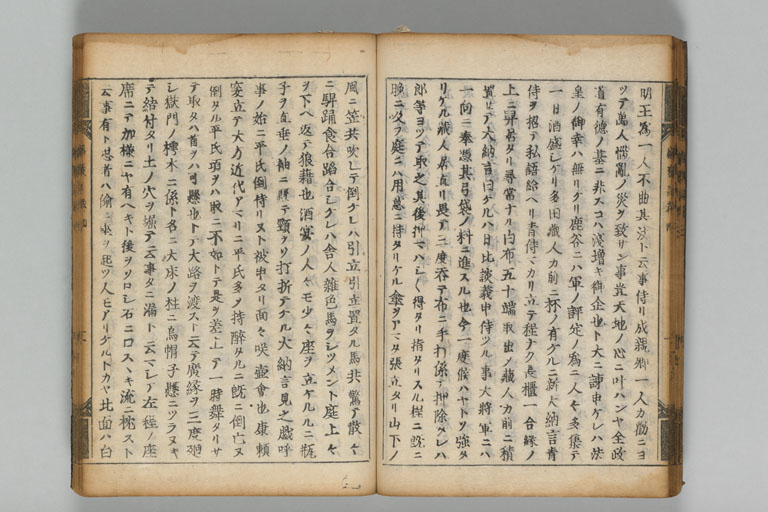 明王為一人不曲其法ト云事侍リ成親卿一人カ勧ニヨ
ツテ萬人惱亂ノ災ヲ致サン事豈天地ノ心ニ叶ハンヤ全政
道有徳ノ基ニ非スコハ浅増キ御企也ト大ニ諫申ケレハ法
皇ノ御幸ハ無リケリ鹿谷ニハ軍ノ評定ノ為ニ人々多集テ
一日酒盛シケリ多田蔵人カ前ニ杯ノ有ケルニ新大納言青
侍ヲ招テ私語給ヘリ青侍マカリ立テ程ナク長櫃一合縁ノ
上ニ舁居タリ尋常ナリ白布五十端取出メ蔵人カ前ニ積
置セテ大納言曰ケルハ日比談義申侍ツル事大将軍ニハ
一向ニ奉憑其弓袋ノ料ニ進スル也今一度候ハヤトソ強タ
リケル蔵人居直リ畏テ三度呑テ布ニ手打係テ押除タレハ
郎等ヨツテ取之其後押マハシ得タリ指タリスル程ニ既ニ
晩ニ及ヲ庭ニハ用意ニ持タリケル傘ヲアマタ張立タリ山下ノ
風ニ笠共吹レテ倒ケレハ引立引立置タル馬共驚テ散々
ニ駻踊食合踏合シケレハ舎人雑色馬ヲシツメント庭上々
ヲ下ヘ返テ狼藉也酒宴ノ人々モ少々座ヲ立ケルニ瓶
子ヲ直垂ノ袖ニ懸テ頸ヲソ打折テケル大納言見之戯呼
事ノ始ニ平氏倒侍リヌト被申タリ面々咲壺會也康頼
突立テ大方近代アマリニ平氏多ヲ持酔タルニ既ニ倒亡ヌ
倒タル平氏頭ヲハ取ニ不如トテ是ヲ差上テ一時舞タリサ
テ取タハ首ヲハ可懸也トテ大路ヲ渡スト云テ廣縁ヲ三度廻
シ獄門ノ樗木ニ係ト名ニ大床ノ柱ニ烏帽子懸ニツラヌキ
テ結付タリ土ノ穴ヲ堀テ云事タニ漏ト云マシテ左程ノ座
席ニテ加様ニヤ有ヘキト後ヲソロシ石ニ口スヽキ流ニ枕スト
云事有ト忍者ハ偷ニ座ヲ起ツ人モアリケルトカヤ北面ハ白